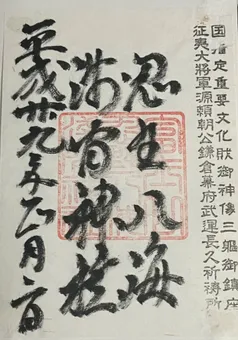 国指定重要文化財御神像三躯御鎮座
征夷大將軍源頼朝公鎌倉幕府武運長久祈祷所
忍野八海
浅間神社
平成廿九年 月 日